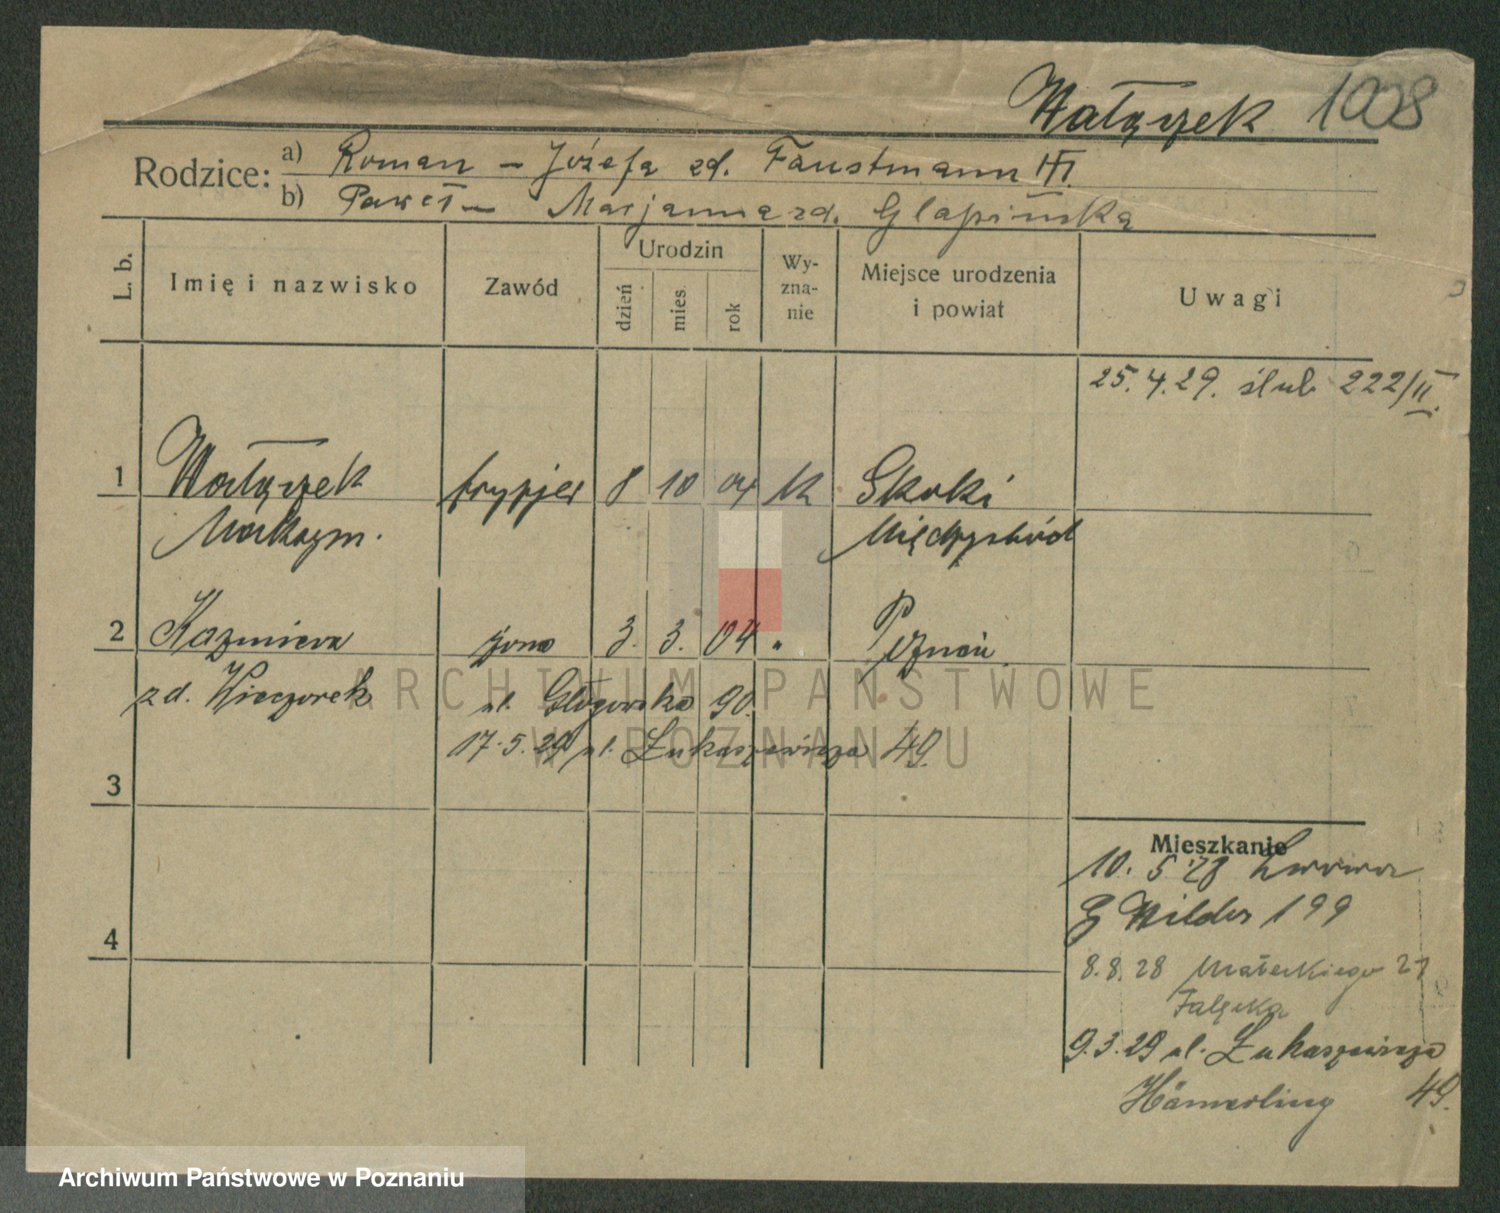 Wałęzek 1008
Rodzice: a) Roman – Józefa zd. Faustmann
b) Paweł – Marjanna zd. Glapińska
L. b. Imię i nazwisko Zawód Urodzin dzień mies. rok Wy-zna-nie Miejsce urodzenia i powiat Uwagi
25.4.29. ślub 222/II.
1 Wałęzek fryzjer 8 10 04 k Skoki
Maksym. Międzychód
2 Kazmiera żona 3. 3. 04 " Poznań
zd. Wieczorek ul. Głogowska 90.
17.5.29 ul. Łukaszewicza 49.
3
Mieszkanie
10. 5 28
G Wilda 199
4
8.8.28 Małeckiego 21
9.3.29 ul. Łukaszewicza
Hämerling 49.
ARCHIWUM PAŃSTWOWE
W POZNANIU
Archiwum Państwowe w Poznaniu